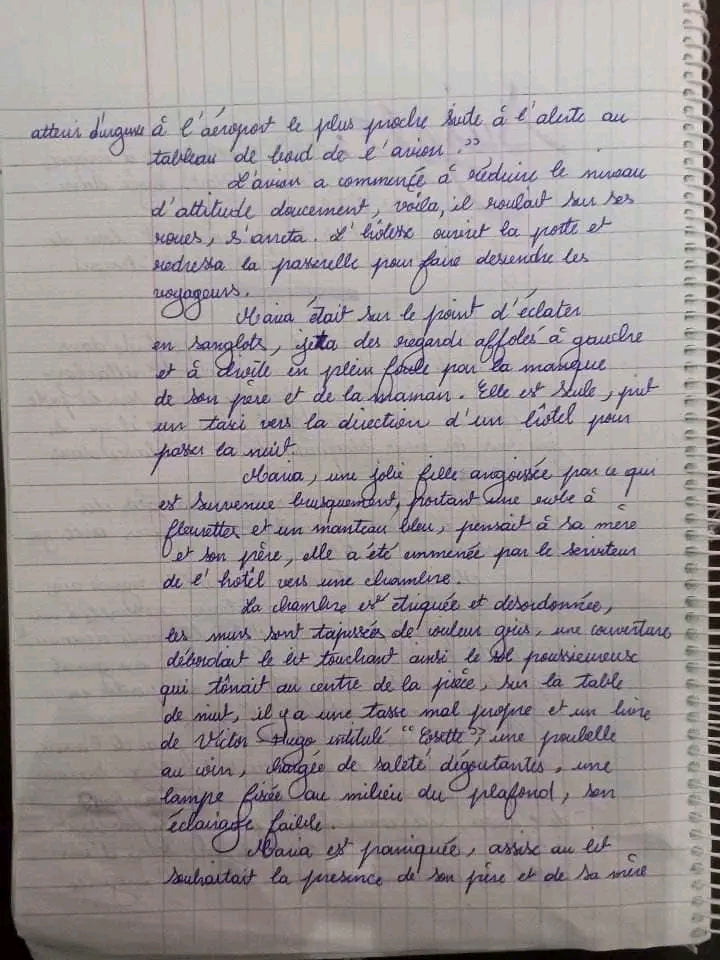 atteris d'urgence à l'aéroport le plus proche suite à l'alerte au
tableau de bord de l'avion."
L'avion a commencé à réduire le niveau
d'attitude doucement, voilà, il roulait sur ses
roues, s'arreta. L'hôtesse ouvrit la porte et
redressa la passerelle pour faire descendre les
voyageurs.
Maria était sur le point d'éclater
en sanglots, jeta des regards affolés à gauche
et à droite en plein foule par la manque
de son père et de la maman. Elle est seule, prit
un taxi vers la direction d'un hôtel pour
passer la nuit.
Maria, une jolie fille angoissée par ce qui
est survenue brusquement, portant une robe à
fleurettes et un manteau bleu, pensait à sa mère
et son père, elle a été emmenée par le serviteur
de l'hôtel vers une chambre.
La chambre est étriquée et desordonnée,
les murs sont tapissées de couleur gris, une couverture
débordait le lit touchant ainsi le sol poussiereuse
qui tônait au centre de la pièce, sur la table
de nuit, il y a une tasse mal propre et un livre
de Victor Hugo intitulé "Cosette", une poubelle
au coin, chargée de saleté dégoutantes, une
lampe fixée au milieu du plafond, son
éclairage faible.
Maria est paniquée, assise au lit
souhaitait la presence de son père et de sa mère